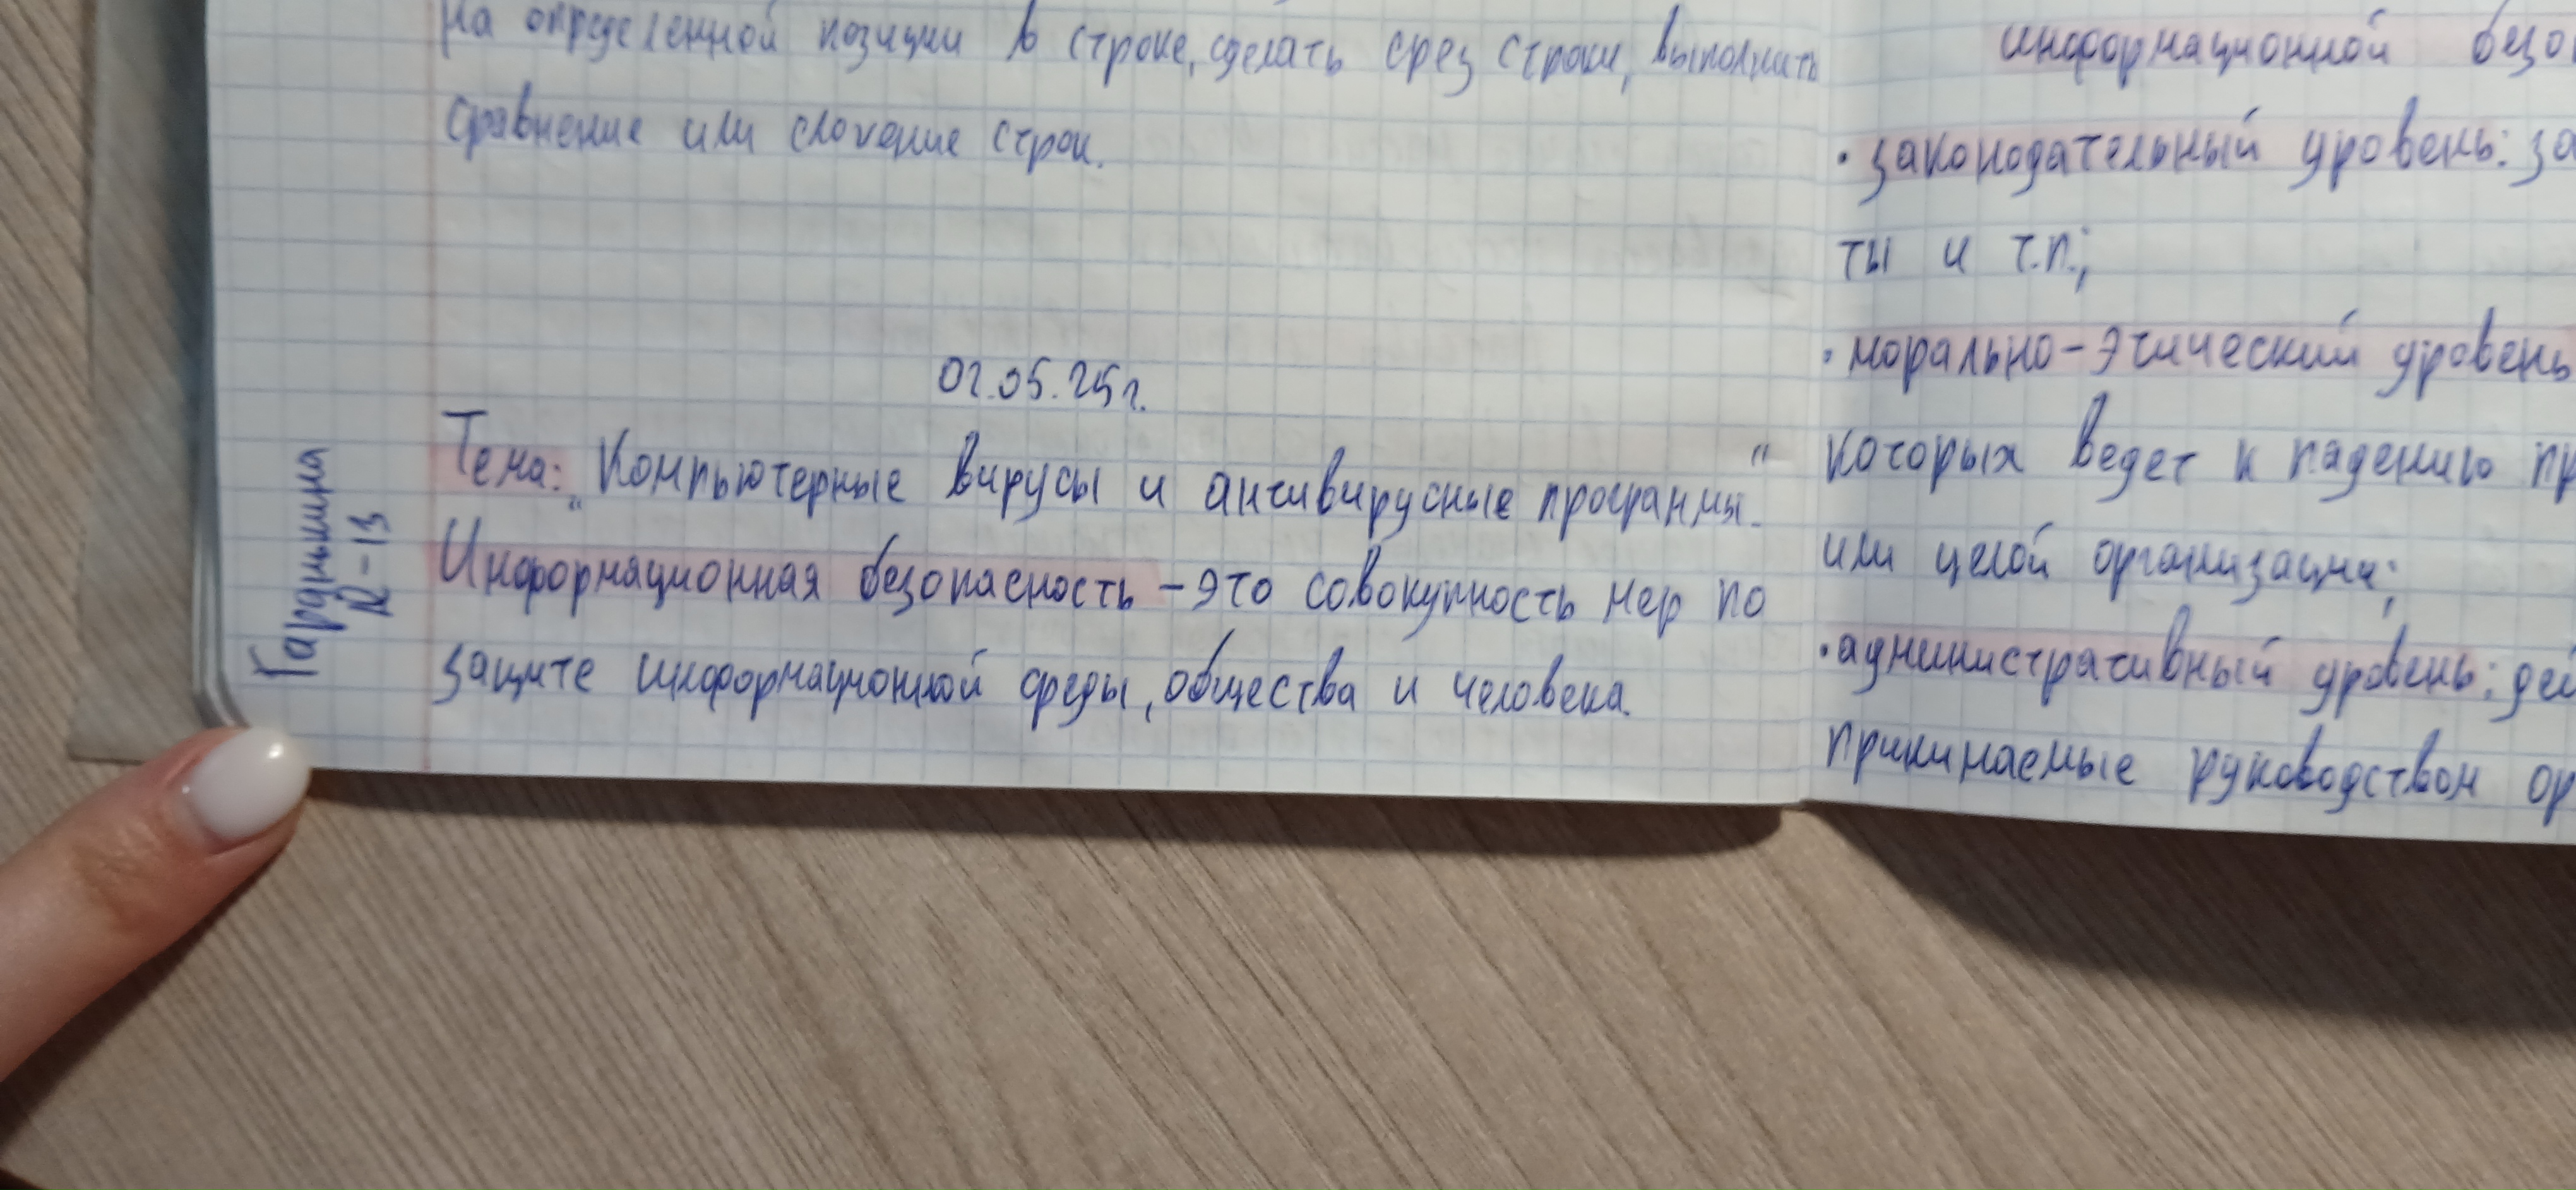 на определенной позиции в строке, сделать срез строки, выполнить
сравнение или сложение строк.
02.05.25г.
Тема: „Компьютерные вирусы и антивирусные программы."
Информационная безопасность – это совокупность мер по
защите информационной среды, общества и человека.
информационной безо
· законодательный уровень: за
ты и т.п.;
· морально-этический уровень
которых ведет к падению пр
или целой организации;
· административный уровень: дей
принимаемые руководством ор